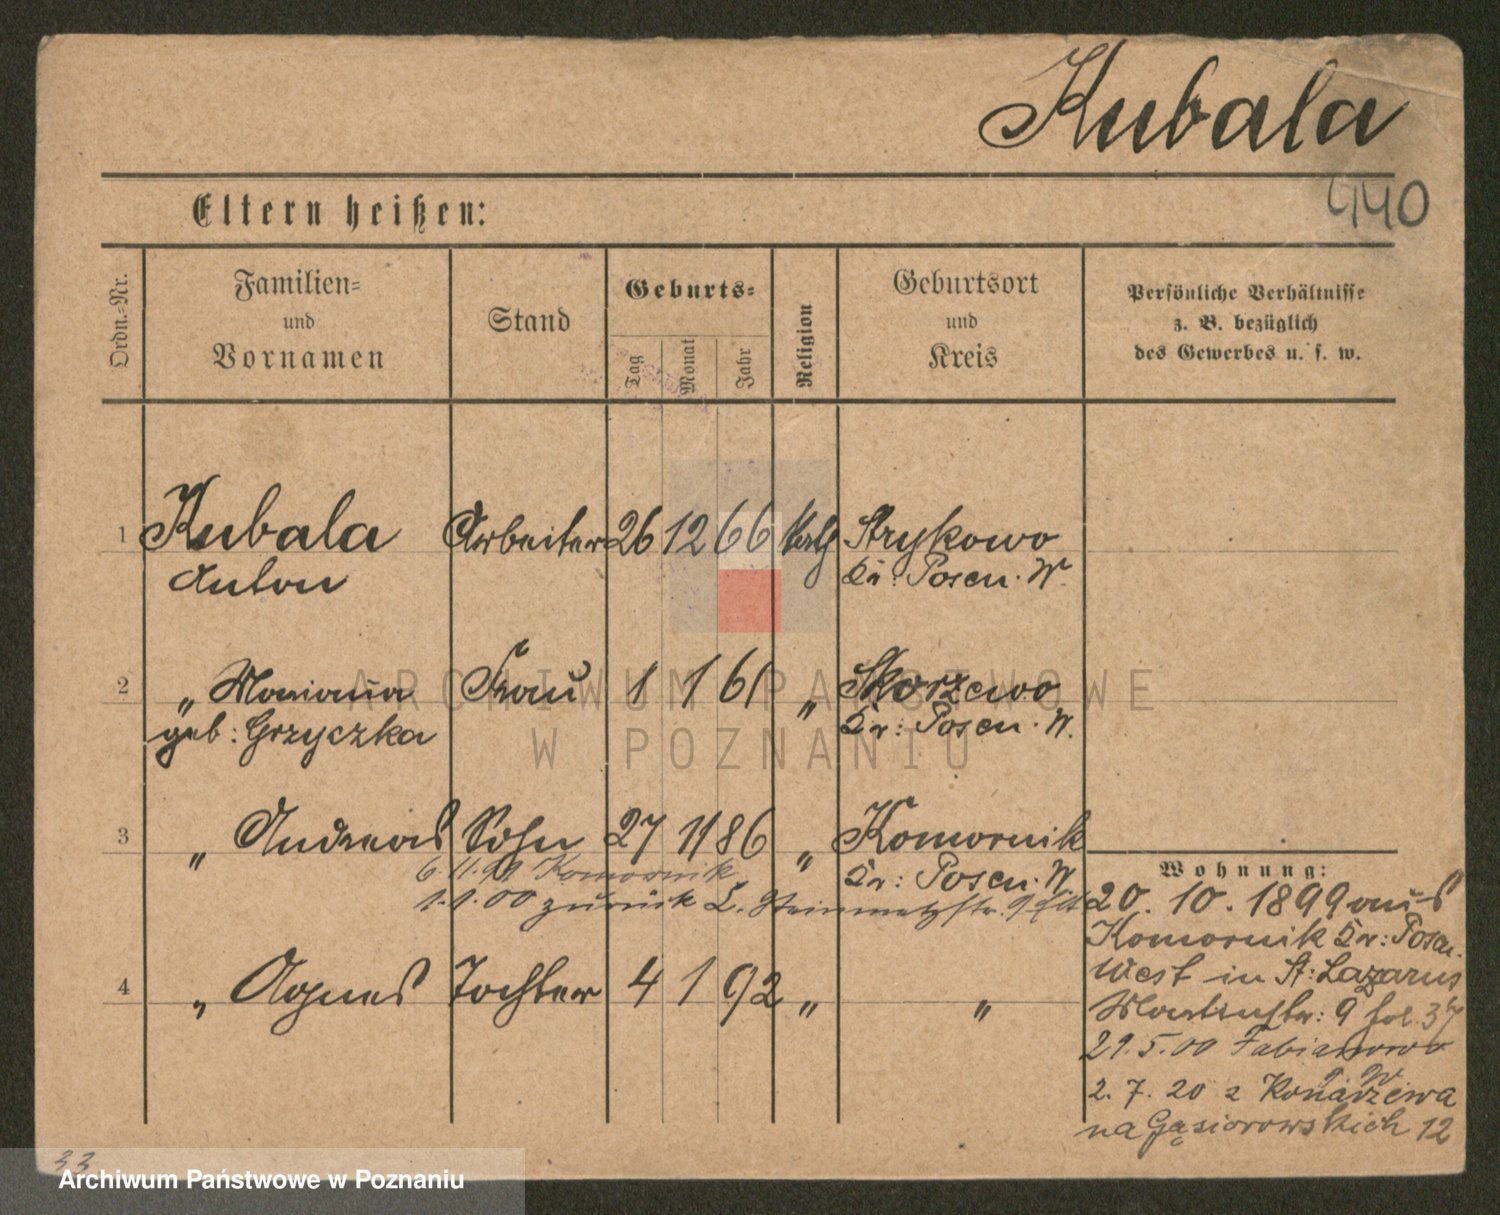 Kubala
440
Eltern heißen:
Ordn.-Nr.
Familien-
und
Vornamen
Stand
Geburts-
Tag
Monat
Jahr
Religion
Geburtsort
und
Kreis
Persönliche Verhältnisse
z. B. bezüglich
des Gewerbes u. s. w.
1 Kubala Arbeiter 26 12 66 kath Strykowo
Anton Kr: Posen. W.
2 " Marianna Frau 1 1 61 " Skorzewo
geb: Grzyczka Kr: Posen. W.
3 " Andreas Sohn 27 11 86 " Komornik
Kr: Posen. W
6.11.99 Komornik
1.1.00 zurück L. Steinmetzstr. 9
4 " Agnes Tochter 4 1 92 " "
Wohnung:
20. 10. 1899 aus
Komornik Kr: Posen.
West in St: Lazarus
Martinstr: 9 fol. 37
29.5.00 Fabianowo
P. W
2. 7. 20 z Konarzewa
na Gąsiorowskich 12
33
ARCHIWUM PAŃSTWOWE
W POZNANIU
Archiwum Państwowe w Poznaniu